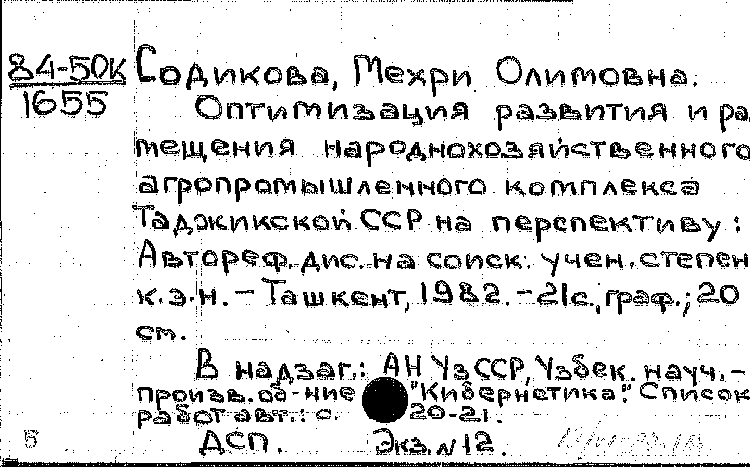 84-50к Содикова, Мехри Олимовна.
1655 Оптимизация развития и ра
мещения народнохозяйственного
агропромышленного комплекса
Таджикской ССР на перспективу :
Автореф. дис. на соиск. учен. степен
к.э.н. - Ташкент, 1982. - 21с., граф.; 20
см.
В надзаг.: АН УзССР, Узбек. науч. -
произв. об-ние "Кибернетика". Список
работ авт.: с. 20-21.
Б ДСП. Экз. N 12.